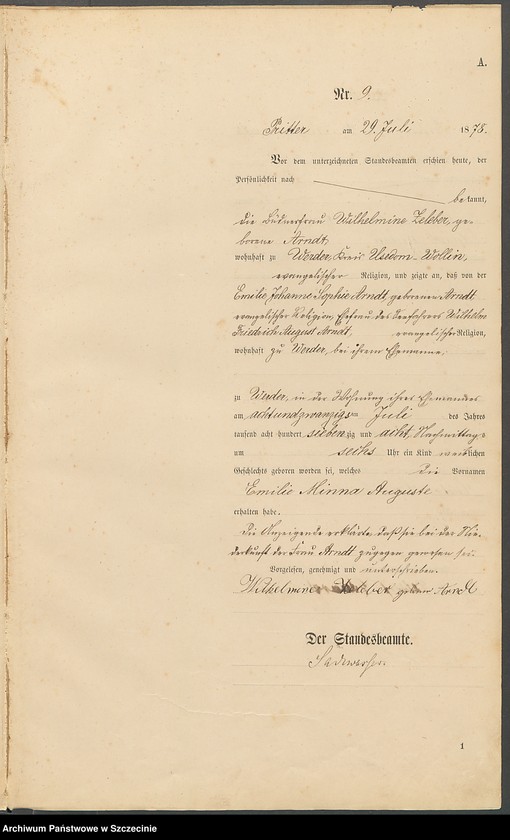 A.
Nr. 9.
Pritter am 29. Juli 1878.
Vor dem unterzeichneten Standesbeamten erschien heute, der
Persönlichkeit nach
bekannt,
die Büdnerfrau Wilhelmine Zeleber, ge-
borene Arndt,
wohnhaft zu Werder, Kreis Usedom-Wollin,
evangelischer Religion, und zeigte an, daß von der
Emilie Johanne Sophie Arndt, geborenen Arndt,
evangelischer Religion, Ehefrau des Seefahrers Wilhelm
Friedrich August Arndt, evangelischer Religion,
wohnhaft zu Werder, bei ihrem Ehemanne,
zu Werder, in der Wohnung ihres Ehemannes
am achtundzwanzigsten Juli des Jahres
tausend acht hundert siebenzig und acht, Nachmittags
um sechs Uhr ein Kind weiblichen
Geschlechts geboren worden sei, welches die Vornamen
Emilie Minna Auguste
erhalten habe.
Die Anzeigende erklärte, daß sie bei der Nie-
derkunft der Frau Arndt zugegen gewesen sei.
Vorgelesen, genehmigt und unterschrieben.
Wilhelmine geborn Arndt
Der Standesbeamte.
1
Archiwum Państwowe w Szczecinie